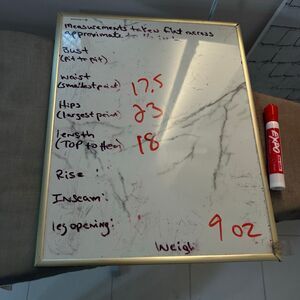 measurements taken flat across
approximate to
Bust
(Pit to pit)
waist
(smallest point) 17.5
Hips
(largest point) 23
Length
(TOP to Hem) 18
Rise:
Inseam:
leg opening:
9 oz
Weigh
EXPO